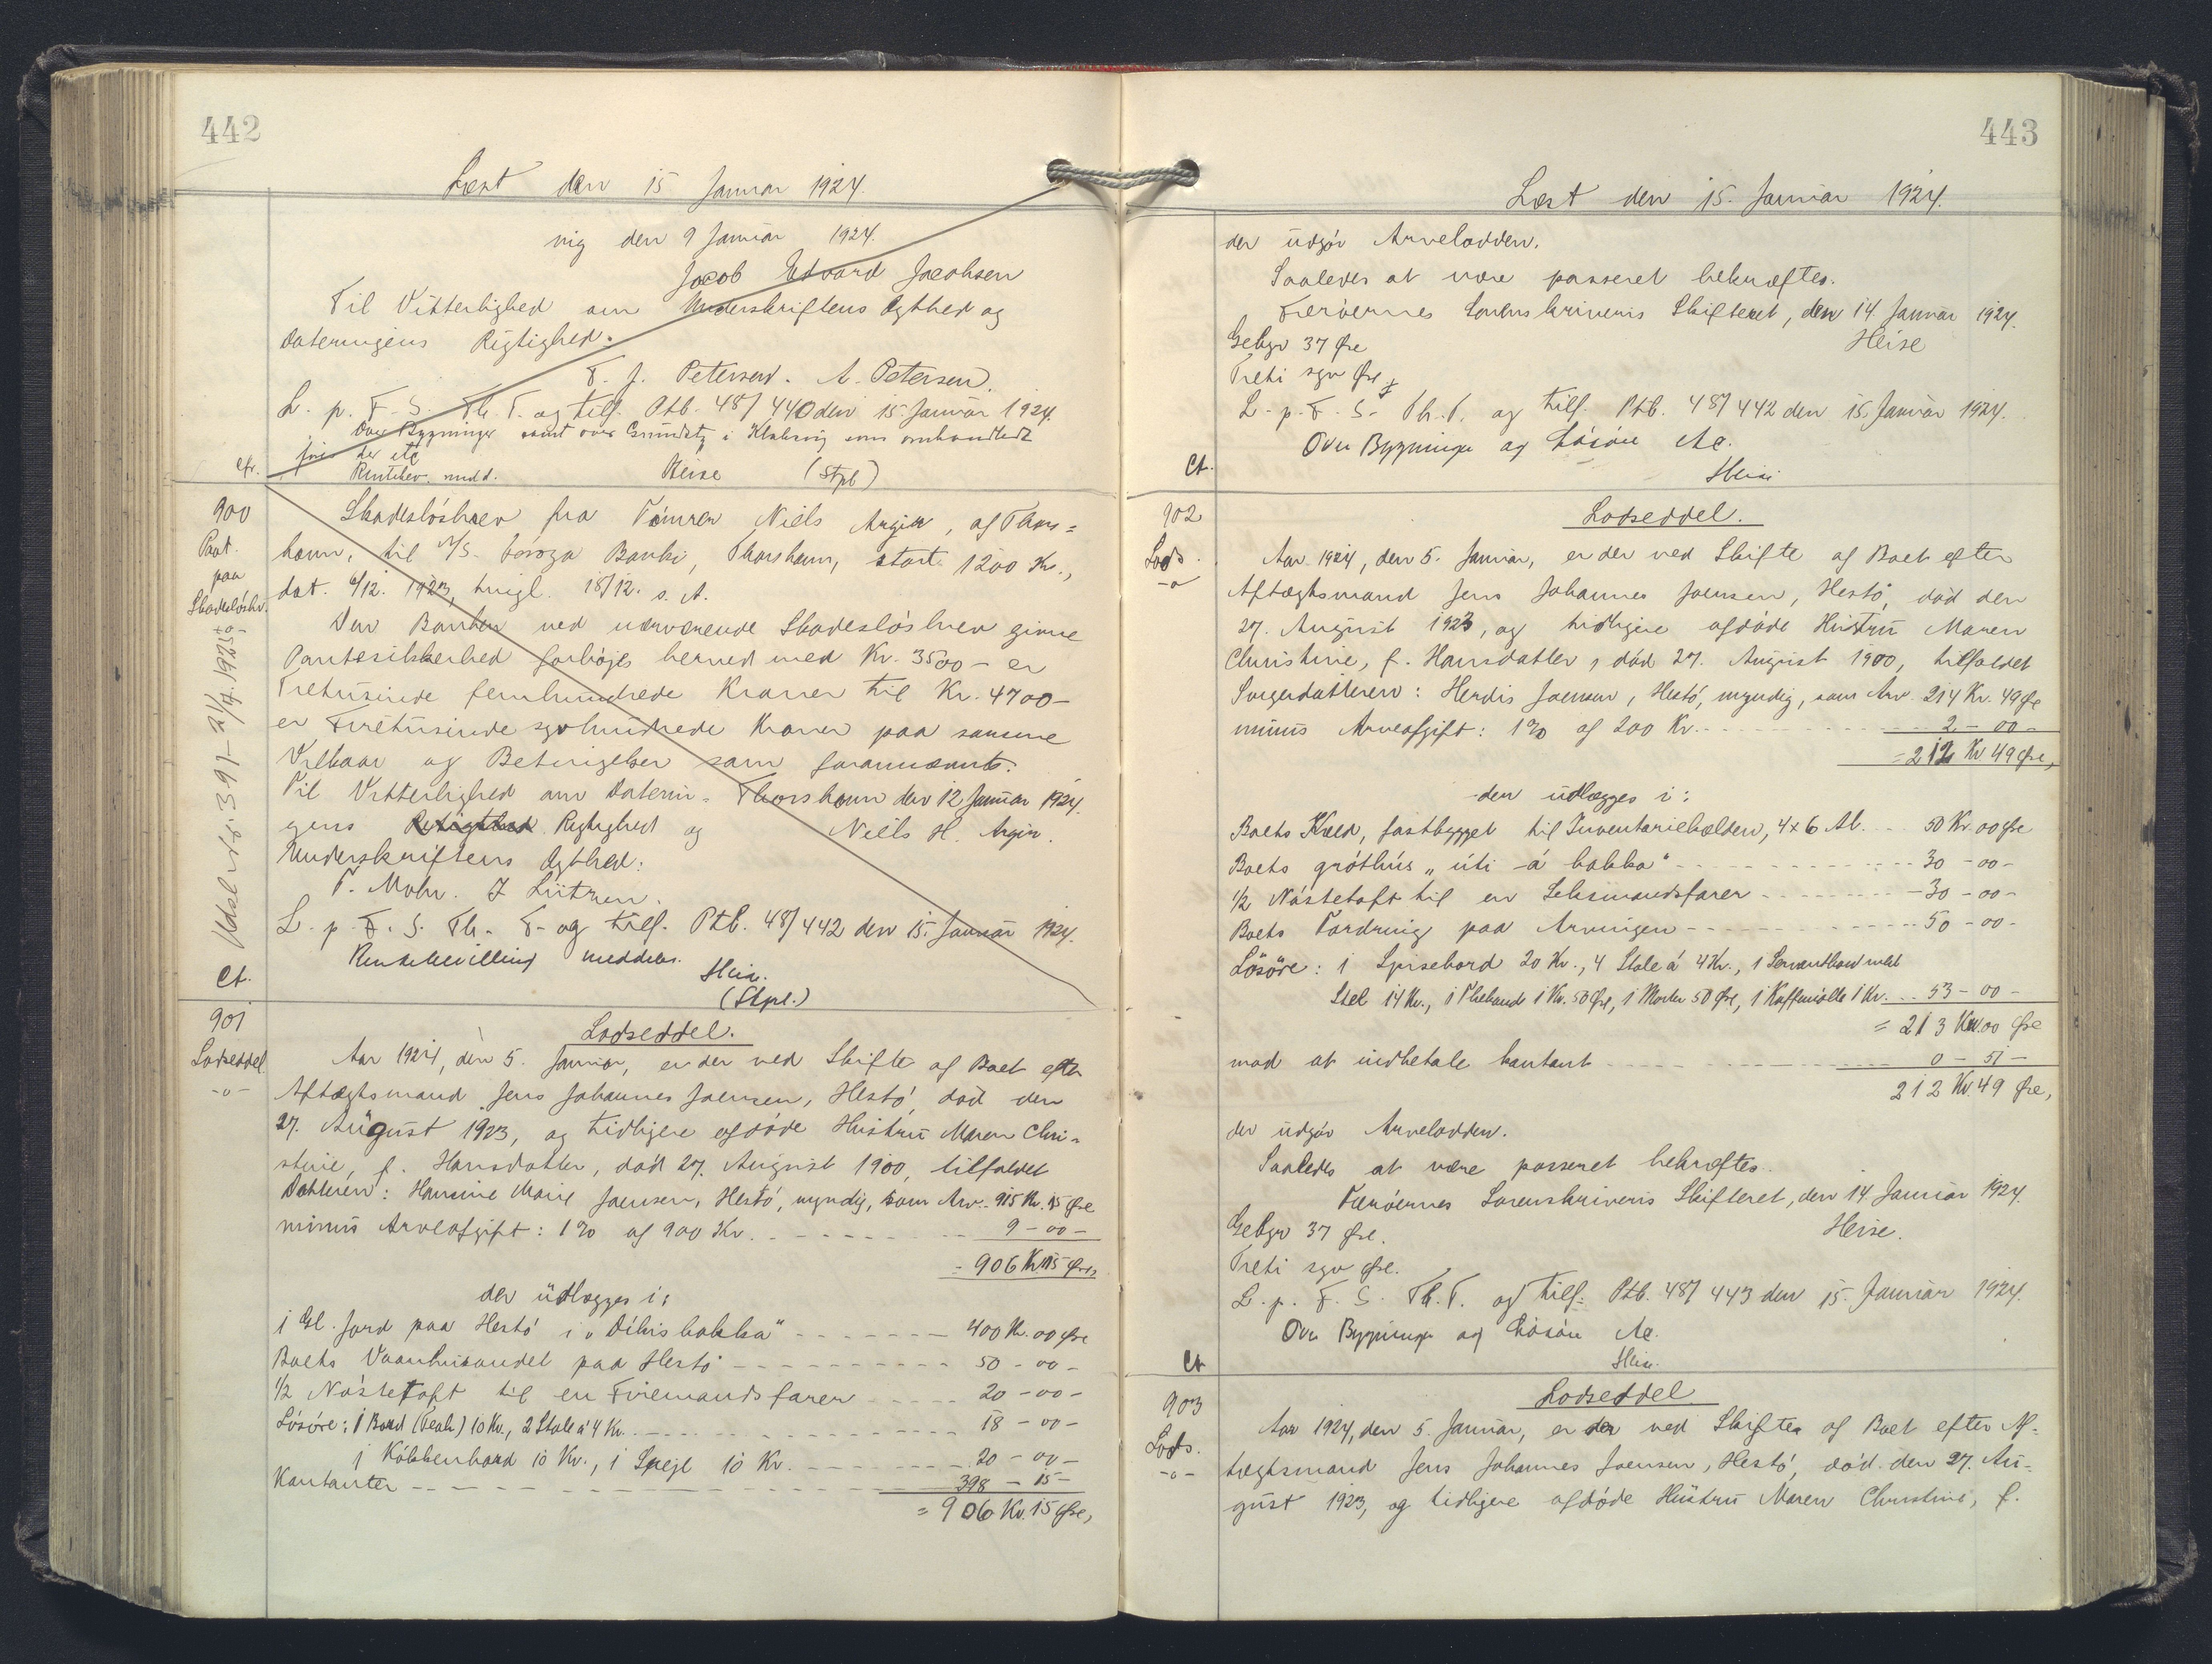 442
Læst den 15 Januar 1924.
vig den 9 Januar 1924.
Jacob Edvard Jacobsen
Til Vitterlighed om Underskriftens Ægthed og
Dateringens Rigtighed.
F. J. Petersen. A. Petersen.
L. p. F. S. Th. T. og tilf. Ptb. 48/440 den 15. Januar 1924.
Over Bygninger samt over Grundstk i Klaksvig som omhandlet
der etc
Rentebev. medd. Heise (Stpl)
cfr.
900
Paat.
paa
Skadesløsbr.
-o-
Udslettet. 391 - 21/4. 1925
Skadesløsbrev fra Tømrer Niels Argin, af Thors=
havn, til A/S. Føroya Banki, Thorshavn, stort 1200 Kr.,
dat. 6/12. 1923, tingl. 18/12. s. A.
Den Banken ved nærværende Skadesløsbrev givne
Pantesikkerhed forhøjes herved med Kr. 3500 - er
Tretusinde femhundrede Kroner til Kr. 4700 -
er Firetusinde syvhundrede Kroner paa samme
Vilkaar og Betingelser som forannævnt.
Til Vitterlighed om Daterin- Thorshavn den 12 Januar 1924.
gens Rigtighed og Niels H. Argin.
Underskriftens Ægthed:
T. Mohr. J Lützen.
L. p. F. S. Th. T. og tilf. Ptb. 48/442 den 15. Januar 1924.
Rentebevilling meddeles.
Heise.
(Stpl.)
Ct.
901
Lodseddel
-o-
Lodseddel.
Aar 1924, den 5. Januar, er der ved Skifte af Boet efter
Aftægtsmand Jens Johannes Joensen, Hestø, død den
27. August 1923, og tidligere afdøde Hustru Maren Chri-
stine, f. Hansdatter, død 27. August 1900, tilfaldet
Datteren: Hansine Marie Joensen, Hestø, myndig, som Arv. 915 Kr. 15 Øre
minus Arveafgift: 1% af 900 Kr. 9 - 00 -
= 906 Kr 15 Øre,
der udlægges i:
1 Gl. Jord paa Hestø i "Díkisbakka" 400 Kr. 00 Øre
Boets Vaanhusandel paa Hestø 50 - 00 -
1/2 Nøstetoft til en Firemandsfarer 20 - 00 -
Løsøre: 1 Bord (Teak) 10 Kr., 2 Stole á 4 Kr. 18 - 00 -
1 Køkkenbord 10 Kr., 1 Spejl 10 Kr. 20 - 00 -
Kontanter 398 - 15 -
= 906 Kr. 15 Øre,
443
Læst den 15. Januar 1924.
der udgør Arvelodden.
Saaledes at være passeret bekræftes.
Færøernes Sorenskriveris Skifteret, den 14. Januar 1924.
Gebyr 37 Øre Heise
Treti syv Øre
L. p. F. S. Th. T. og tilf. Ptb. 48/442 den 15. Januar 1924.
Over Bygninger og Løsøre &c.
Ct. Heise
902
Lods.
-o-
Lodseddel.
Aar 1924, den 5. Januar, er der ved Skifte af Boet efter
Aftægtsmand Jens Johannes Joensen, Hestø, død den
27. August 1923, og tidligere afdøde Hustru Maren
Christine, f. Hansdatter, død 27. August 1900, tilfaldet
Svigerdatteren: Herdis Joensen, Hestø, myndig, som Arv. 214 Kr. 49 Øre
minus Arveafgift: 1% af 200 Kr. 2 - 00 -
= 212 Kr 49 Øre,
der udlægges i:
Boets Kæld, fastbygget til Inventariekælden, 4x6 Al. 50 Kr. 00 Øre
Boets gróthús "úti á bakka" 30 - 00 -
1/2 Nøstetoft til en Seksmandsfarer 30 - 00 -
Boets Fordring paa Arvingen 50 - 00 -
Løsøre: 1 Spisebord 20 Kr., 4 Stole á 4 Kr., 1 Servantbord med
Stel 14 Kr., 1 Thekande 1 Kr. 50 Øre, 1 Morter 50 Øre, 1 Kaffemølle 1 Kr. 53 - 00 -
= 213 Kr. 00 Øre
mod at indbetale kontant 0 - 51 -
212 Kr. 49 Øre,
der udgør Arvelodden.
Saaledes at være passeret bekræftes.
Færøernes Sorenskriveris Skifteret, den 14. Januar 1924.
Gebyr 37 Øre. Heise.
Treti syv Øre.
L. p. F. S. Th. T. og tilf. Ptb. 48/443 den 15. Januar 1924.
Over Bygninger og Løsøre &c.
Ct Heise.
903
Lods.
-o-
Lodseddel.
Aar 1924, den 5. Januar, er der ved Skifte af Boet efter Af-
tægtsmand Jens Johannes Joensen, Hestø, død den 27. Au-
gust 1923, og tidligere afdøde Hustru Maren Christine, f.